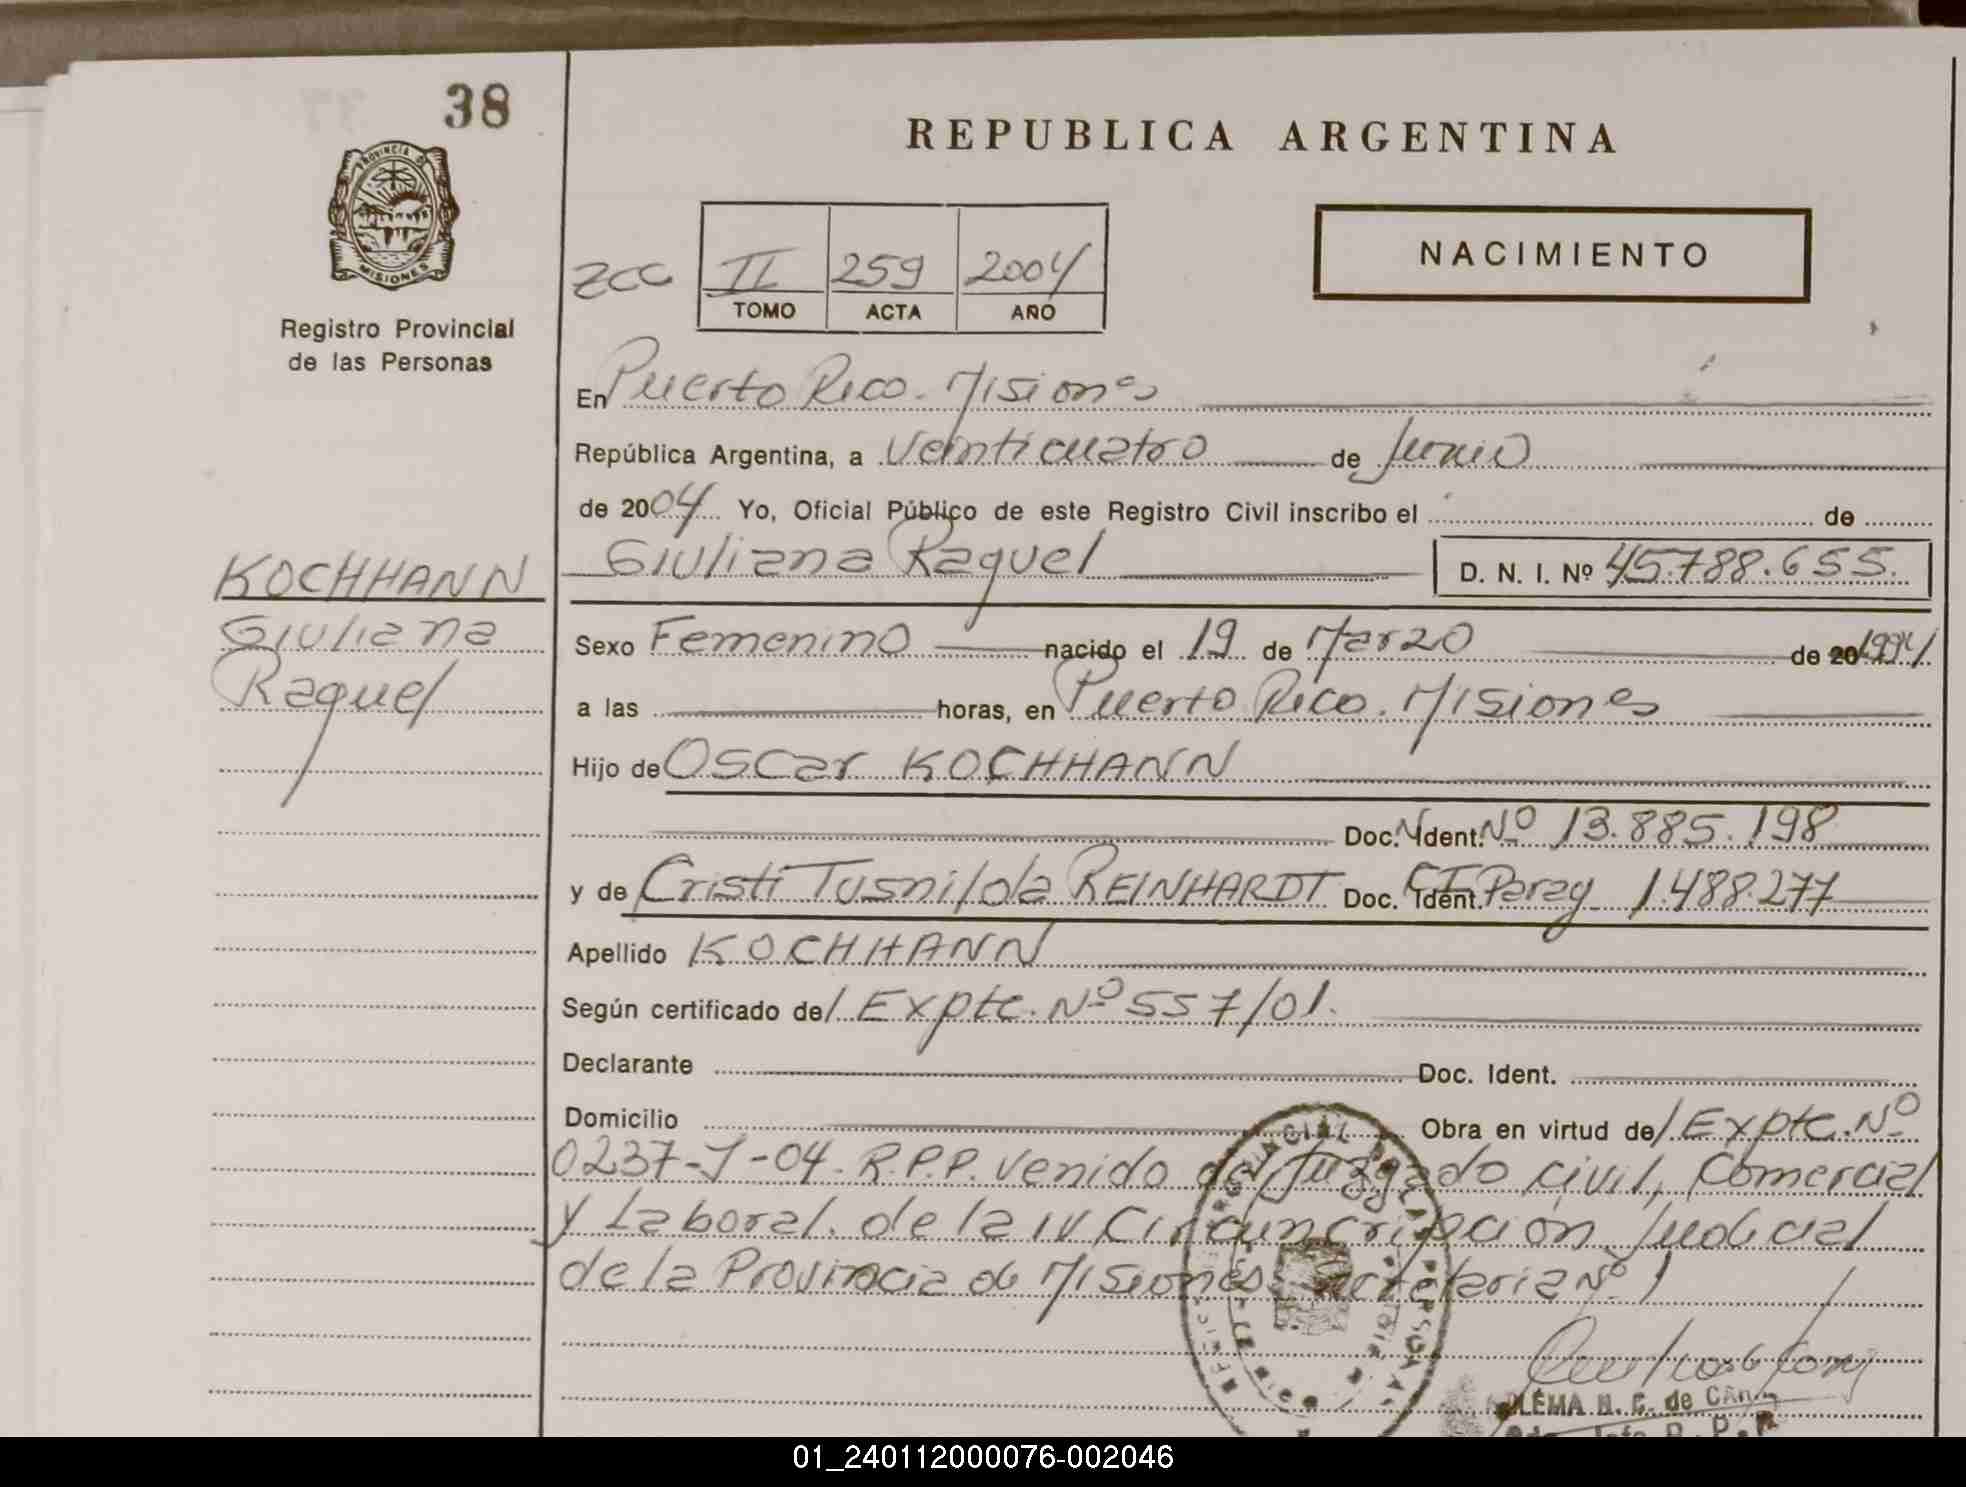 38
PROVINCIA DE
MISIONES
Registro Provincial
de las Personas
REPUBLICA ARGENTINA
NACIMIENTO
zcc II 259 2004
TOMO ACTA AÑO
En Puerto Rico. Misiones
República Argentina, a Veinticuatro de Junio
de 2004 Yo, Oficial Público de este Registro Civil inscribo el de
Giuliana Raquel D. N. I. Nº 45.788.655.
KOCHHANN
Giuliana
Raquel
Sexo Femenino nacido el 19 de Marzo de 20 1994
a las horas, en Puerto Rico. Misiones
Hijo de Oscar KOCHHANN
Doc. Ident. Nº 13.885.198
y de Cristi Tusnilda REINHARDT Doc. Ident. CI Parag 1.488.277
Apellido KOCHHANN
Según certificado de/ Expte. Nº 557/01.
Declarante Doc. Ident.
Domicilio Obra en virtud de/ Expte. Nº
0237-J-04. R.P.P. Venido del Juzgado Civil, Comercial
y Laboral. de la IV Circuncripción Judicial
de la Provincia de Misiones Secretaria Nº 1
N. C. de
01_240112000076-002046